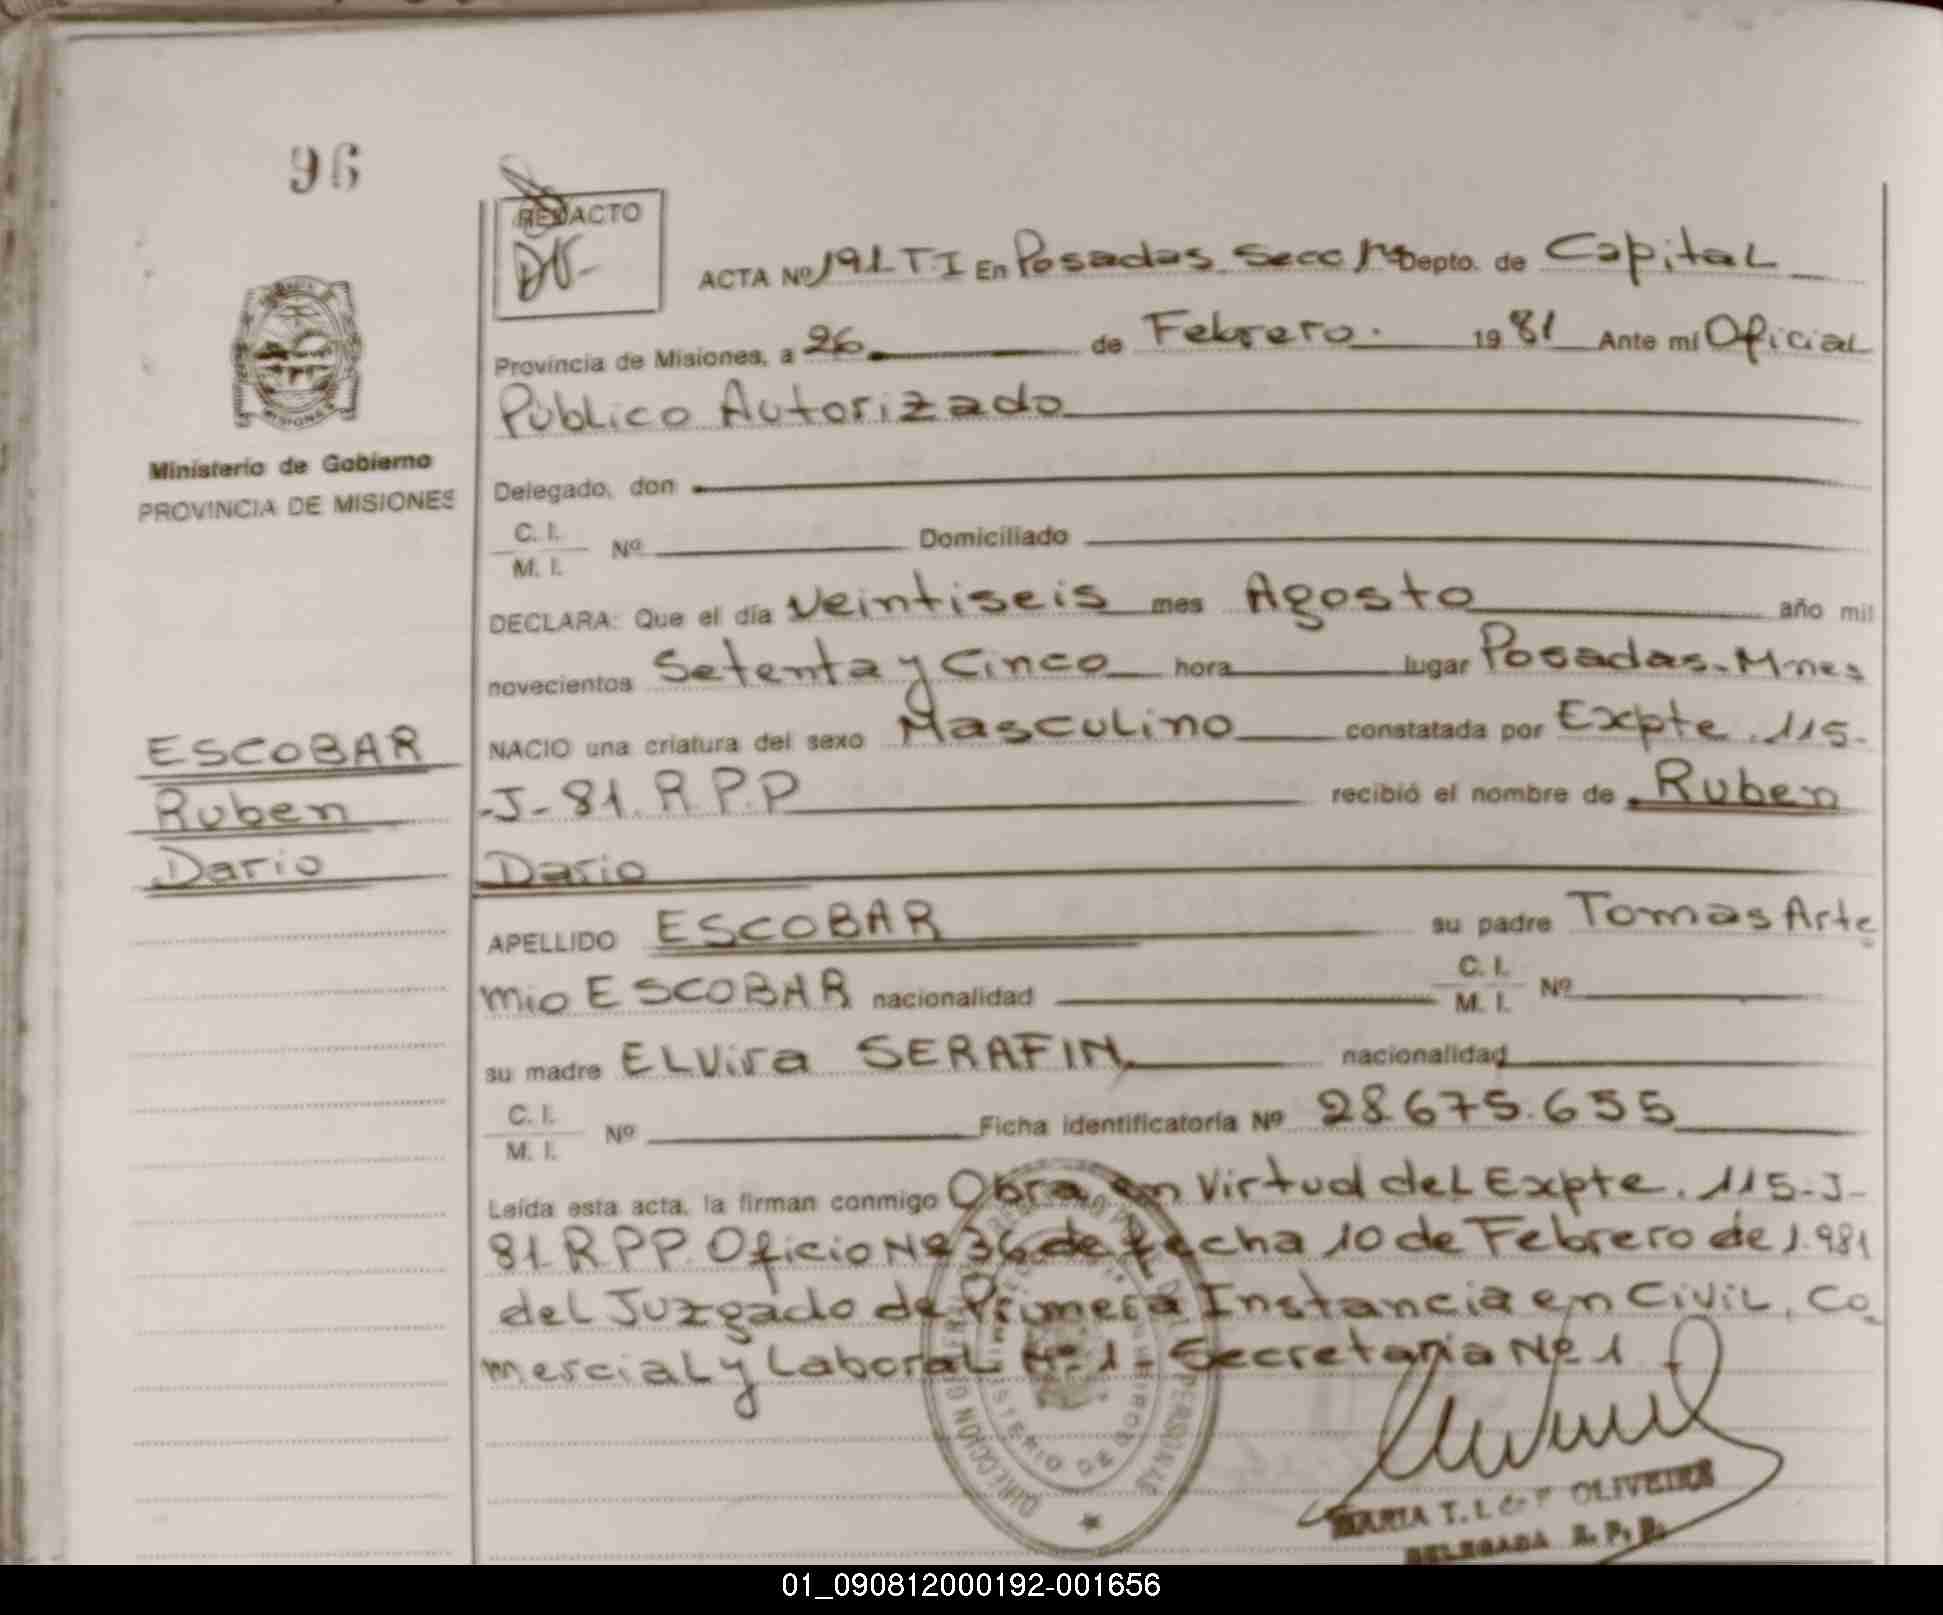 96
REDACTO
ACTA Nº 191 T.I En Posadas Secc 1ª Depto. de Capital
Provincia de Misiones, a 26 de Febrero. 1981 Ante mí Oficial
Público Autorizado
Ministerio de Gobierno
PROVINCIA DE MISIONES
Delegado, don
C. I.
M. I. Nº Domiciliado
DECLARA: Que el día Veintiseis mes Agosto año mil
novecientos Setenta y Cinco hora lugar Posadas-Mnes
NACIO una criatura del sexo Masculino constatada por Expte. 115-
-J-81. R.P.P recibió el nombre de Ruben
Dario
ESCOBAR
Ruben
Dario
APELLIDO ESCOBAR su padre Tomas Arte
mio ESCOBAR nacionalidad C. I. M. I. Nº
su madre ELVira SERAFIN nacionalidad
C. I.
M. I. Nº Ficha identificatoria Nº 28.675.655
Leída esta acta, la firman conmigo Obra en Virtud del Expte. 115-J-
81. R.P.P. Oficio Nº 36 de fecha 10 de Febrero de 1.981
del Juzgado de Primera Instancia en Civil, Co
mercial y Laboral Nº 1 - Secretaria Nº 1
MINISTERIO DE GOBIERNO
MARIA T. L. de OLIVEIRA
DELEGADA R. P. P.
01_090812000192-001656